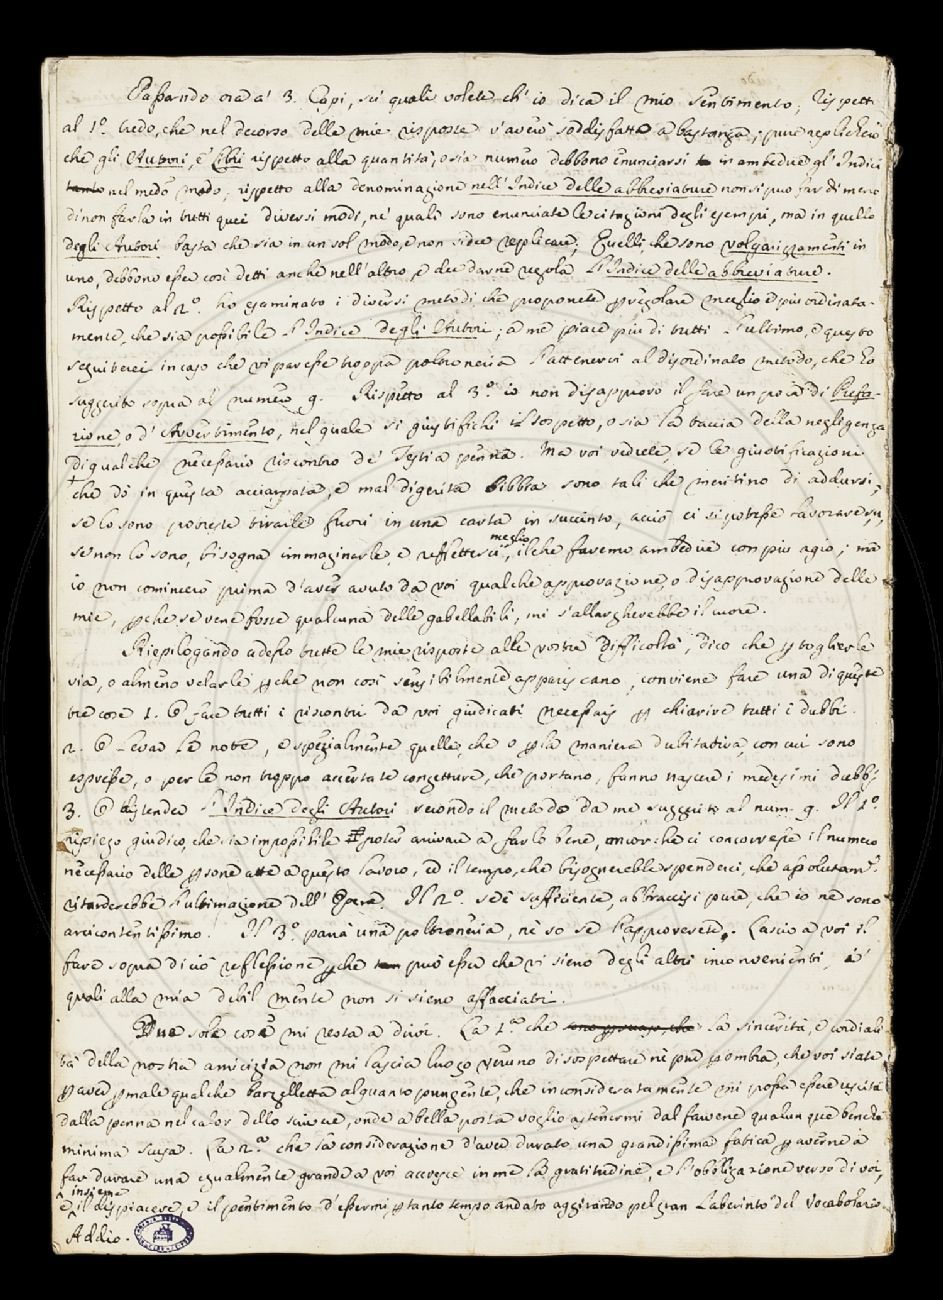 Passando ora a' 3. Capi, sui quali volete ch' io dica il mio sentimento, Rispetto
al 1.º credo, che nel decorso delle mie risposte v'averò soddisfatto a bastanza; pure replicherò
che gli Autori, e Libri rispetto alla quantità, o sia numero debbono enunciarsi in ambedue gl' Indici
nel med.º modo; rispetto alla denominazione nell'Indice delle abbreviature non si può far di meno
di non farla in tutti quei diversi modi, ne' quali sono enunciate le citazioni degli esempi, ma in quello
degli Autori basta che sia in un sol modo, e non si dee replicare; Quelli che sono volgarizzamenti in
uno, debbono esser così detti anche nell'altro, e dee darne regola l'Indice delle abbreviature.
Rispetto al 2.º ho esaminato i diversi metodi che proponete p regolare meglio e più ordinata-
mente, che sia possibile l'Indice degli Autori; a me piace più di tutti l'ultimo, e questo
seguiterei in caso che vi paresse troppa poltroneria l'attenersi al disordinato metodo, che ho
suggerito sopra al numero 9. Rispetto al 3.º io non disapprovo il fare un poca di Prefa-
zione, o d' Avvertimento, nel quale si giustifichi il sospetto, o sia la taccia della negligenza
di qualche necessario riscontro de' Testi a penna. Ma voi vedrete, se le giustificazioni
che dò in questa acciarpata, e mal digerita bibbia sono tali che meritino di addursi;
se lo sono potreste tirarle fuori in una carta in succinto, acciò ci si potesse lavorare su,
se non lo sono, bisogna immaginarle, e rifletterci meglio, il che faremo ambedue con più agio; ma
io non comincerò prima d'aver avuto da voi qualche approvazione, o disapprovazione delle
mie, pche se ve ne fosse qualcuna delle gabellabili, mi s'allargherebbe il cuore.
Riepilogando adesso tutte le mie risposte alle vostre Difficoltà, dico che p toglierle
via, o almeno velarle pche non così sensibilmente appariscano, conviene fare una di queste
tre cose 1. O fare tutti i riscontri da voi giudicati necessarj p chiarire tutti i dubbi.
2. O Levar le note, e spezialmente quelle, che o p la maniera dubitativa, con cui sono
espresse, o per le non troppo accertate congetture, che portano, fanno nascere i medesimi dubbj
3. O distender l'Indice degli Autori secondo il metodo da me suggerito al num. 9. Il 1.º
ripiego giudico, che sia impossibile poter arrivare a farlo bene, ancorche ci concorresse il numero
necessario delle psone atte a questo lavoro, ed il tempo, che bisognerebbe spenderci, che assolutam.e
ritarderebbe l'ultimazione dell' Opera. Il 2.º se è sufficiente, abbraccisi pure, che io ne sono
arcicontentissimo. Il 3.º parrà una poltroneria, nè so se l'approverete. Lascio a voi il
fare sopra di ciò reflessione pche può esser che vi sieno degli altri inconvenienti, i
quali alla mia debil mente non si sieno affacciati.
Due sole cose mi resta a dirvi. La 1.ª che la sincerità, e cordiali-
tà della nostra amicizia non mi lascia luogo veruno di sospettare nè pur p ombra, che voi siate
p aver p male qualche barzelletta alquanto pungente, che inconsideratamente mi possa essere uscita
dalla penna nel calor dello scrivere, onde a bella posta voglio astenermi dal farvene qualunque benchè
minima scusa. La 2.ª che la considerazione d'aver durato una grandissima fatica p averne a
far durare una egualmente grande a voi accresce in me la gratitudine, e l'obbligazione verso di voi,
e insieme il dispiacere, e il pentimento d'essermi p tanto tempo andato aggirando pel gran Laberinto del Vocabolario.
Addio.